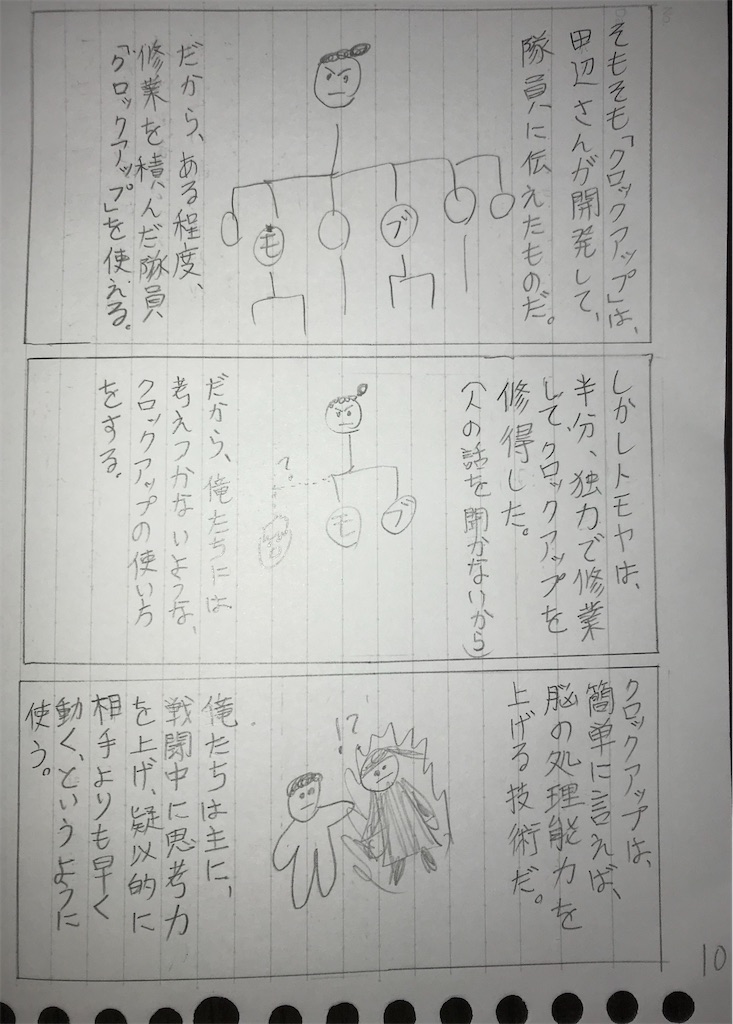 そもそも「クロックアップ」は、
田辺さんが開発して、
隊員に伝えたものだ。
ブ
モ
だから、ある程度、
修業を積んだ隊員
「クロックアップ」を使える。
しかしトモヤは、
半分、独力で修業
してクロックアップを
修得した。
(人の話を聞かないから)
ブ
モ
?
だから、俺たちには
考えつかないような、
クロックアップの使い方
をする。
クロックアップは、
簡単に言えば、
脳の処理能力を
上げる技術だ。
!?
俺たちは主に、
戦闘中に思考力
を上げ、疑似的に
相手よりも早く
動く、というように
使う。
10